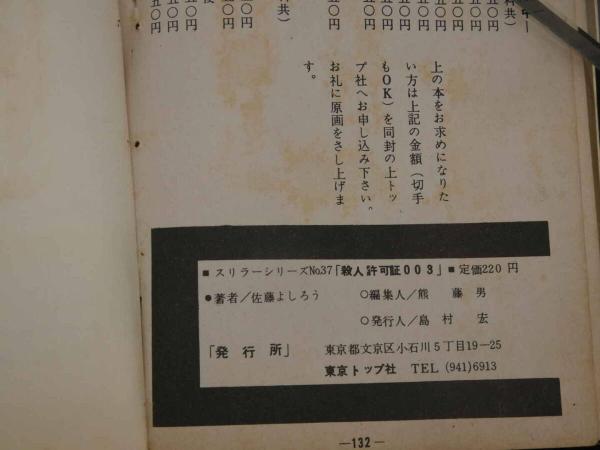 上の本をお求めになりた
い方は上記の金額(切手
もOK)を同封の上トッ
プ社へお申し込み下さい。
お礼に原画をさし上げま
す。
■スリラーシリーズNo.37「殺人許可証003」■定価220円
●著者/佐藤よしろう ○編集人/熊藤男
○発行人/島村宏
「発行所」 東京都文京区小石川5丁目19-25
東京トップ社 TEL (941)6913
—132—